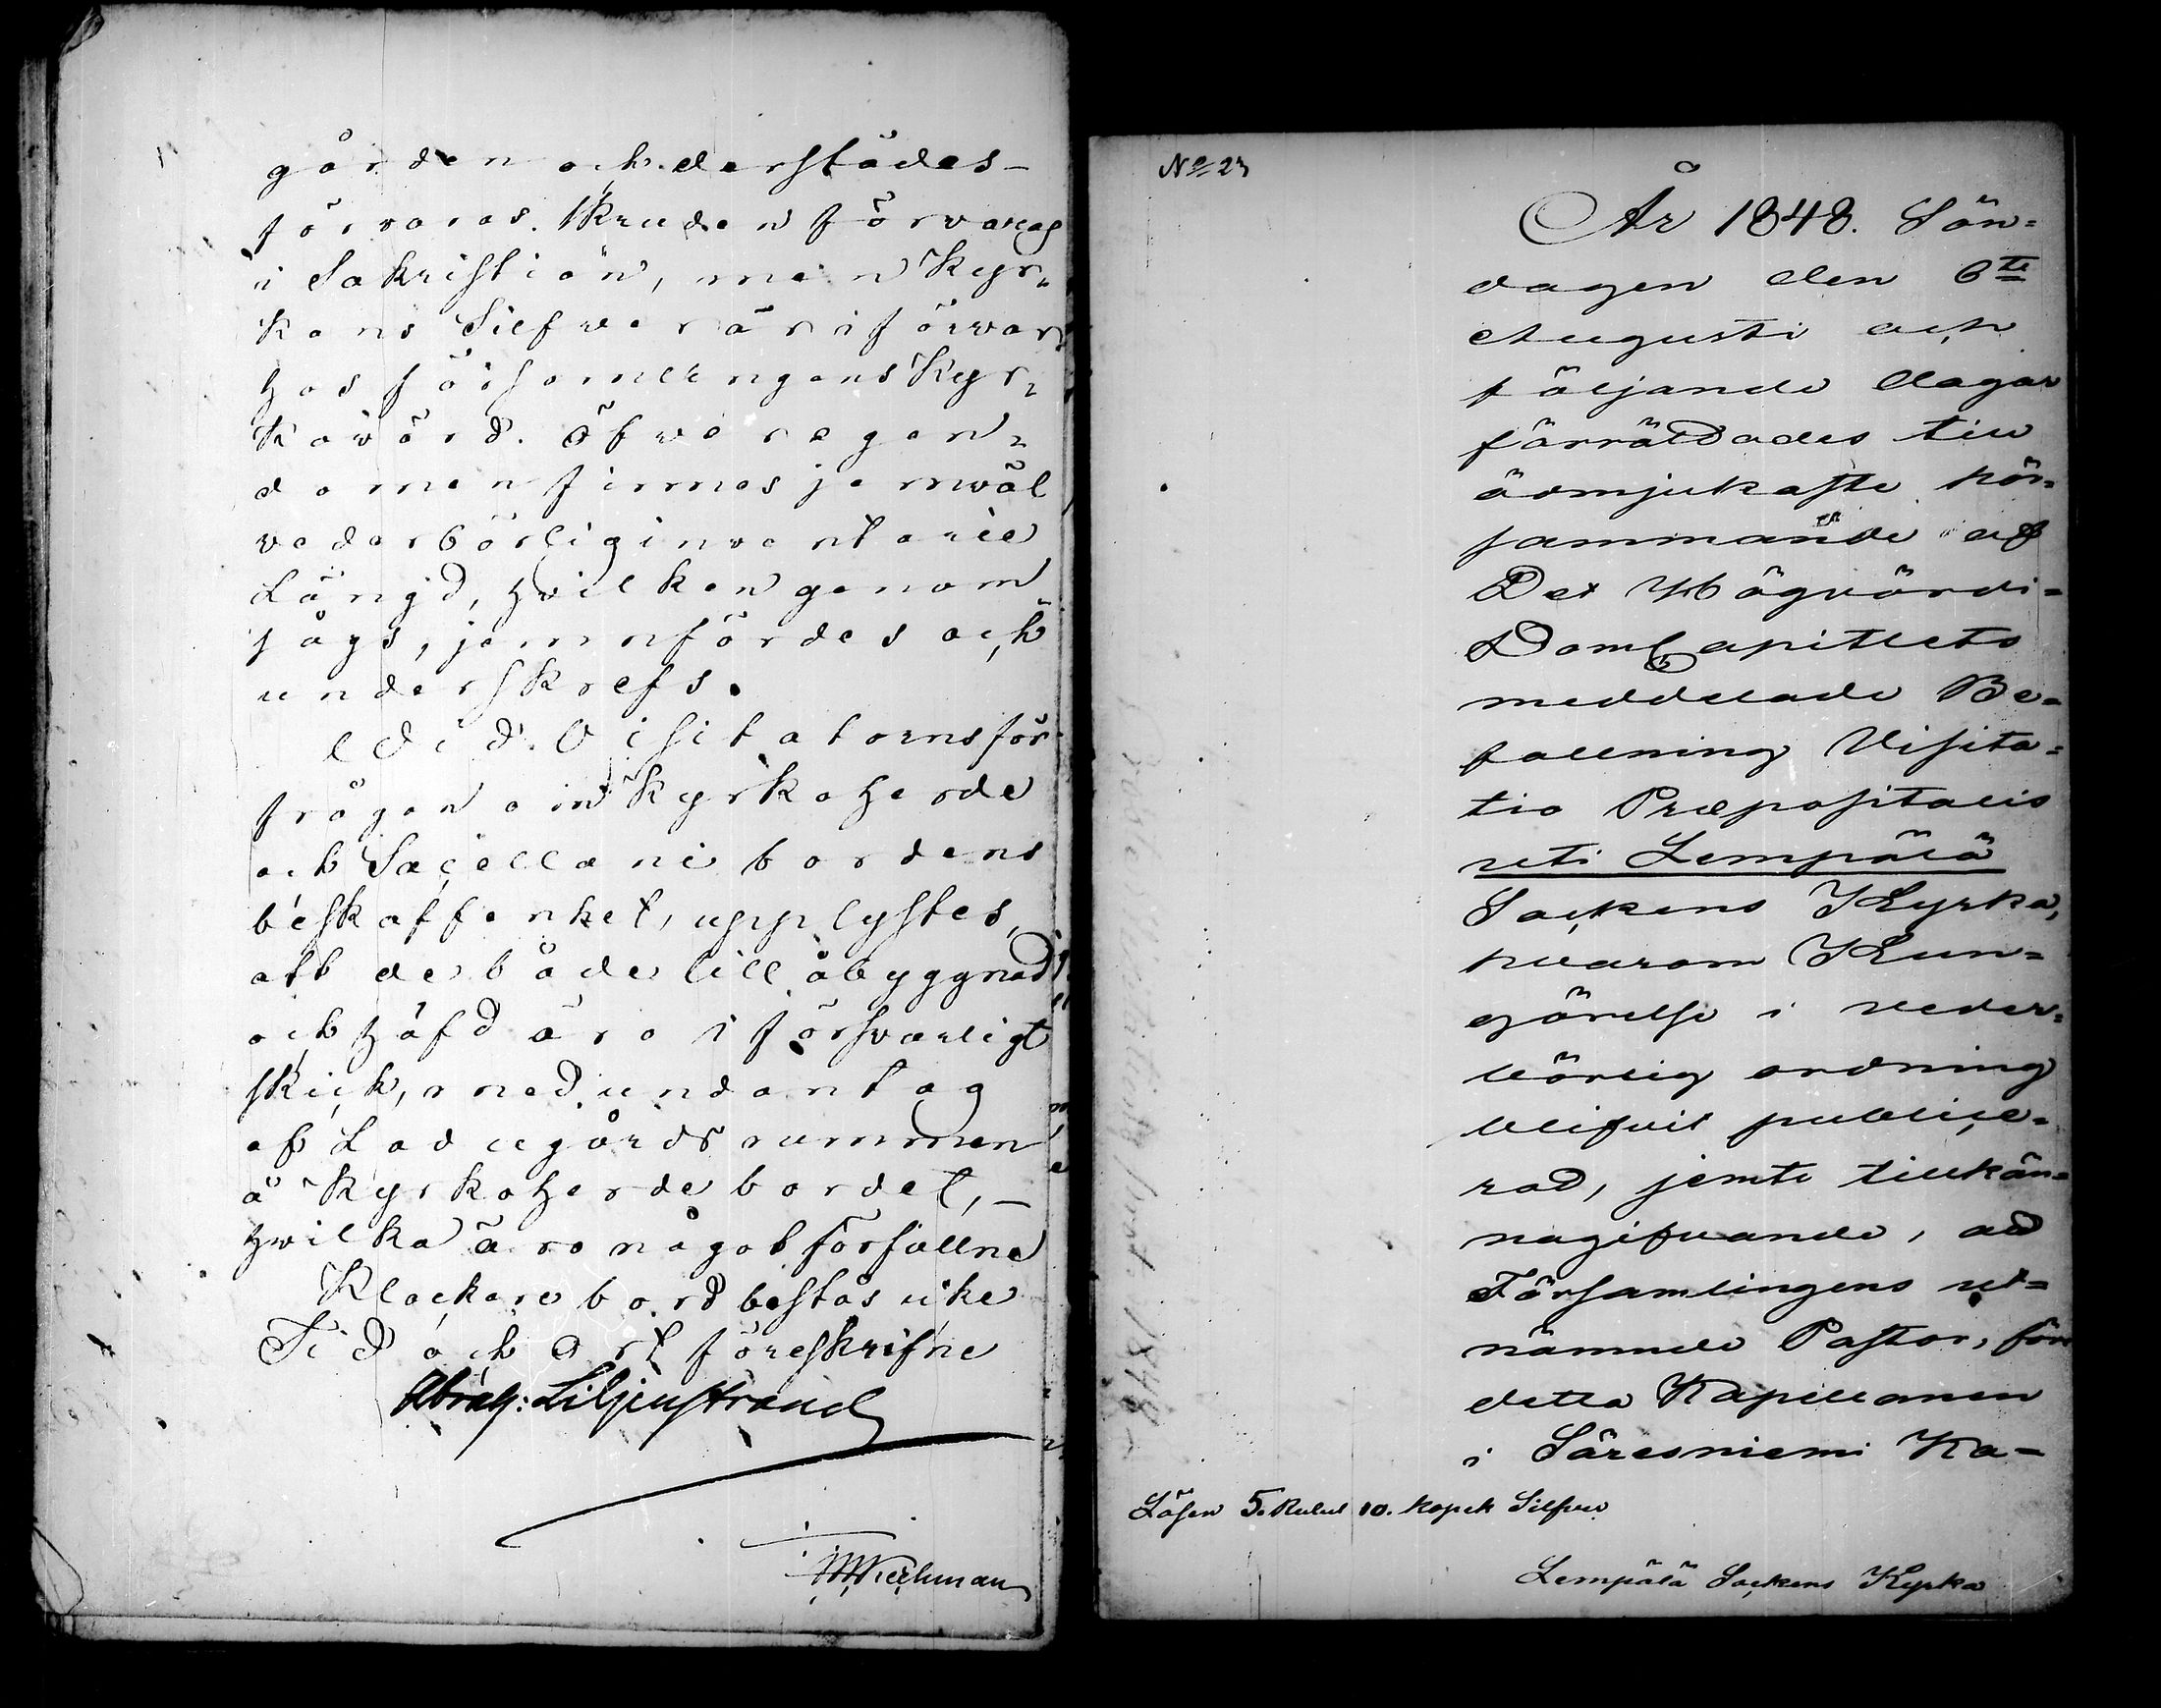 gården och derstädes
förvaras. Skruden förvaras
i Sakristian, men Kyr-
kans Silfver är i förvar
hos församlingens Kyr-
kovärd. Öfver egen-
domen finnes jemväl
vederbörlig inventarie
Längd, hvilken genom
sågs, jemnfördes och
underskrefs.
Visitatorns för
frågan om Kyrkoherde
och Sacellani bordens
beskaffenhet, upplystes,
att de både till åbyggnad
och häfd äro i försvarligt
skick, med undantag
af Ladugårdsrummen
å Kyrkoherdebordet,
hvilka äro något förfallne
Klockare bord bestås icke
Tid och Ort föreskrifne
Abrah: Liljenstrand
No 23
År 1848. Sön-
dagen den 6te
Augusti och
följande dagar
förrättades till
ödmjukaste hör-
sammande af
Det Högvördi-
DomCapitlets
meddelade Be-
fallning Visita-
tio Præpositalis
uti Lempälä
Sockens Kyrka,
hvarom Kun-
görelse i veder-
börlig ordning
blifvit public̨e-
rad, jemte tillkän-
nagifvande, att
Församlingens ut-
nämnde Pastor, för
detta Kapellanen
i Säresniemi Ka-
Lösen 5. Rubel 10. kopek Silfver
Lempälä Sockens Kyrka